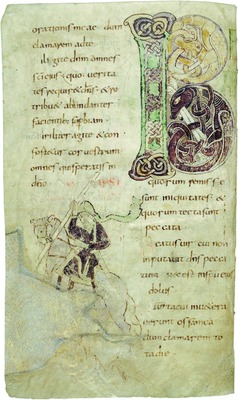 orationis meae dum
clamarem ad te
iligite dnm omnes
sci eius quo verita
tes requir& dns & re
tribu& abundanter
facientib; supbiam
iriliter agite & con
fort&ur cor vestrum
omnes qui speratis in
dno
quorum remisse
sunt iniquitates &
quorum tecta sunt
peccata
eatus vir cui non
imputavit dns pecca
tum nec est in spu eius
dolus
tacui inv&era
verunt ossa mea
dum clamarem to
ta die